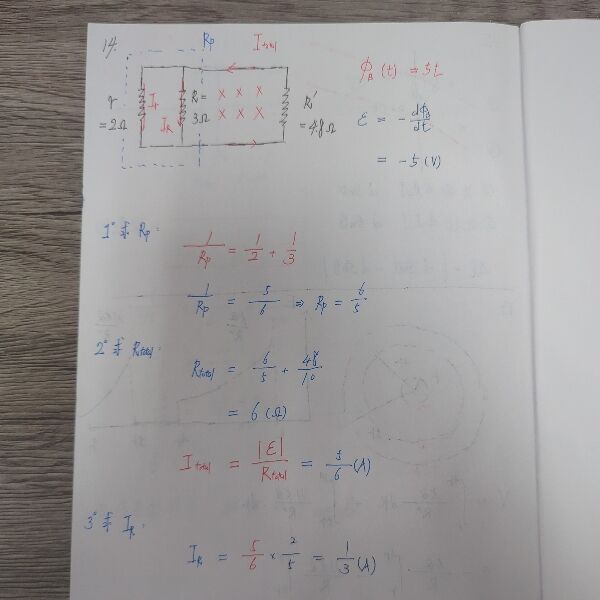 14.
Rp
I total
r
= 2Ω
Ir
IR
R =
3Ω
× × ×
× × ×
R'
= 4.8Ω
ϕB (t) = 5t
ε = - dϕB/dt
= -5 (V)
1° 求 Rp:
1/Rp = 1/2 + 1/3
1/Rp = 5/6 ⇒ Rp = 6/5
2° 求 Rtotal:
Rtotal = 6/5 + 48/10
= 6 (Ω)
I total = |ε|/Rtotal = 5/6 (A)
3° 求 IR:
IR = 5/6 × 2/5 = 1/3 (A)